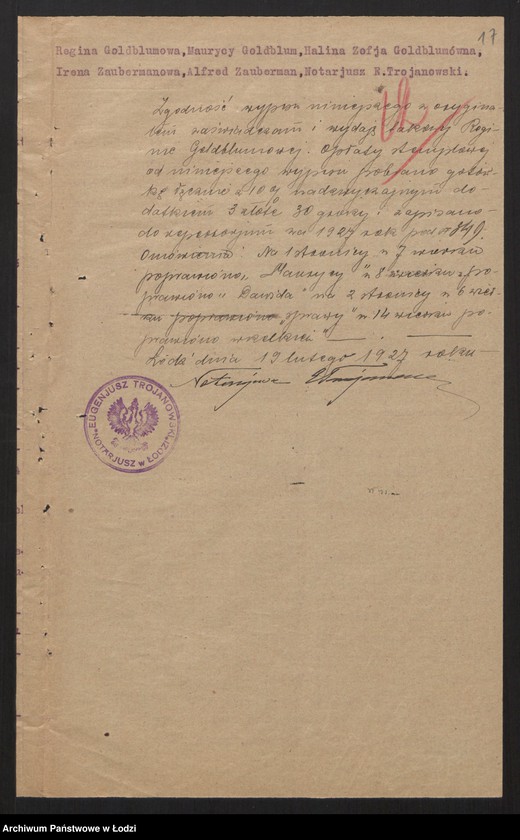 17
Regina Goldblumowa,Maurycy Goldblum,Halina Zofja Goldblumówna,
Irena Zaubermanowa,Alfred Zauberman,Notarjusz E.Trojanowski.
Zgodność wypisu niniejszego z orygina-
łem zaświadczam i wydaję takowy Regi-
nie Goldblumowej. Opłaty stemplowej
od niniejszego wypisu pobrano gotów-
ką łącznie z 10% nadzwyczajnym do-
datkiem 3 złote 30 groszy i zapisano
do repertorjum na 1927 rok pod № 849.
Omówienia: Na 1 stronicy w 7 wierszu
poprawiono „Maurycy" w 8 wierszu „po-
prawiono „Dawida" na 2 stronicy w 6 wier-
szu poprawiono „sprawy" w 14 wierszu po-
prawiono „wszelkich"
Łódź dnia 19 lutego 1927 roku
Notarjusz ETrojanowski
EUGENJUSZ TROJANOWSKI
NOTARJUSZ w ŁODZI
Archiwum Państwowe w Łodzi